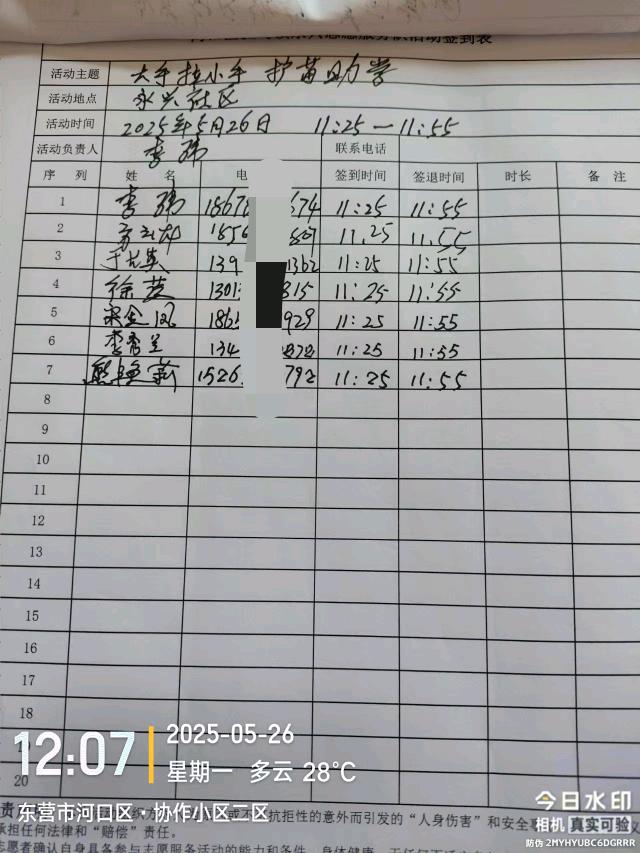 活动签到表
活动主题 大手拉小手 护苗助学
活动地点 永兴社区
活动时间 2025年5月26日 11:25—11:55
活动负责人 李 联系电话
序 列 姓 名 电 签到时间 签退时间 时长 备 注
1 李 1867 674 11:25 11:55
2 1856 11.25 11.55
3 139 1362 11:25 11:55
4 徐 1301 815 11:25 11:55
5 梁金凤 186 929 11:25 11:55
6 李秀兰 134 11:25 11:55
7 熊 1526 792 11:25 11:55
8
9
10
11
12
13
14
15
16
17
18
20
12:07
2025-05-26
星期一 多云 28℃
东营市河口区·协作小区二区
抗拒性的意外而引发的“人身伤害”和安全
承担任何法律和“赔偿”责任。
愿者确认自身具备参与志愿服务活动的能力和条件
今日水印
相机 真实可验
防伪 2MYHYUBC6DGRRR